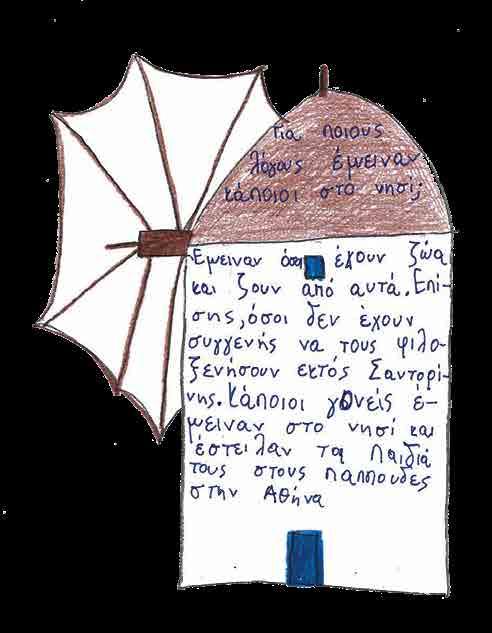 Για ποιους
λόγους έμειναν
κάποιοι στο νησί;
Έμειναν όσοι έχουν ζώα
και ζουν από αυτά. Επί-
σης, όσοι δεν έχουν
συγγενής να τους φιλο-
ξενήσουν εκτός Σαντορί-
νης. Κάποιοι γονείς έ-
μειναν στο νησί και
έστειλαν τα παιδιά
τους στους παππουδες
στην Αθήνα